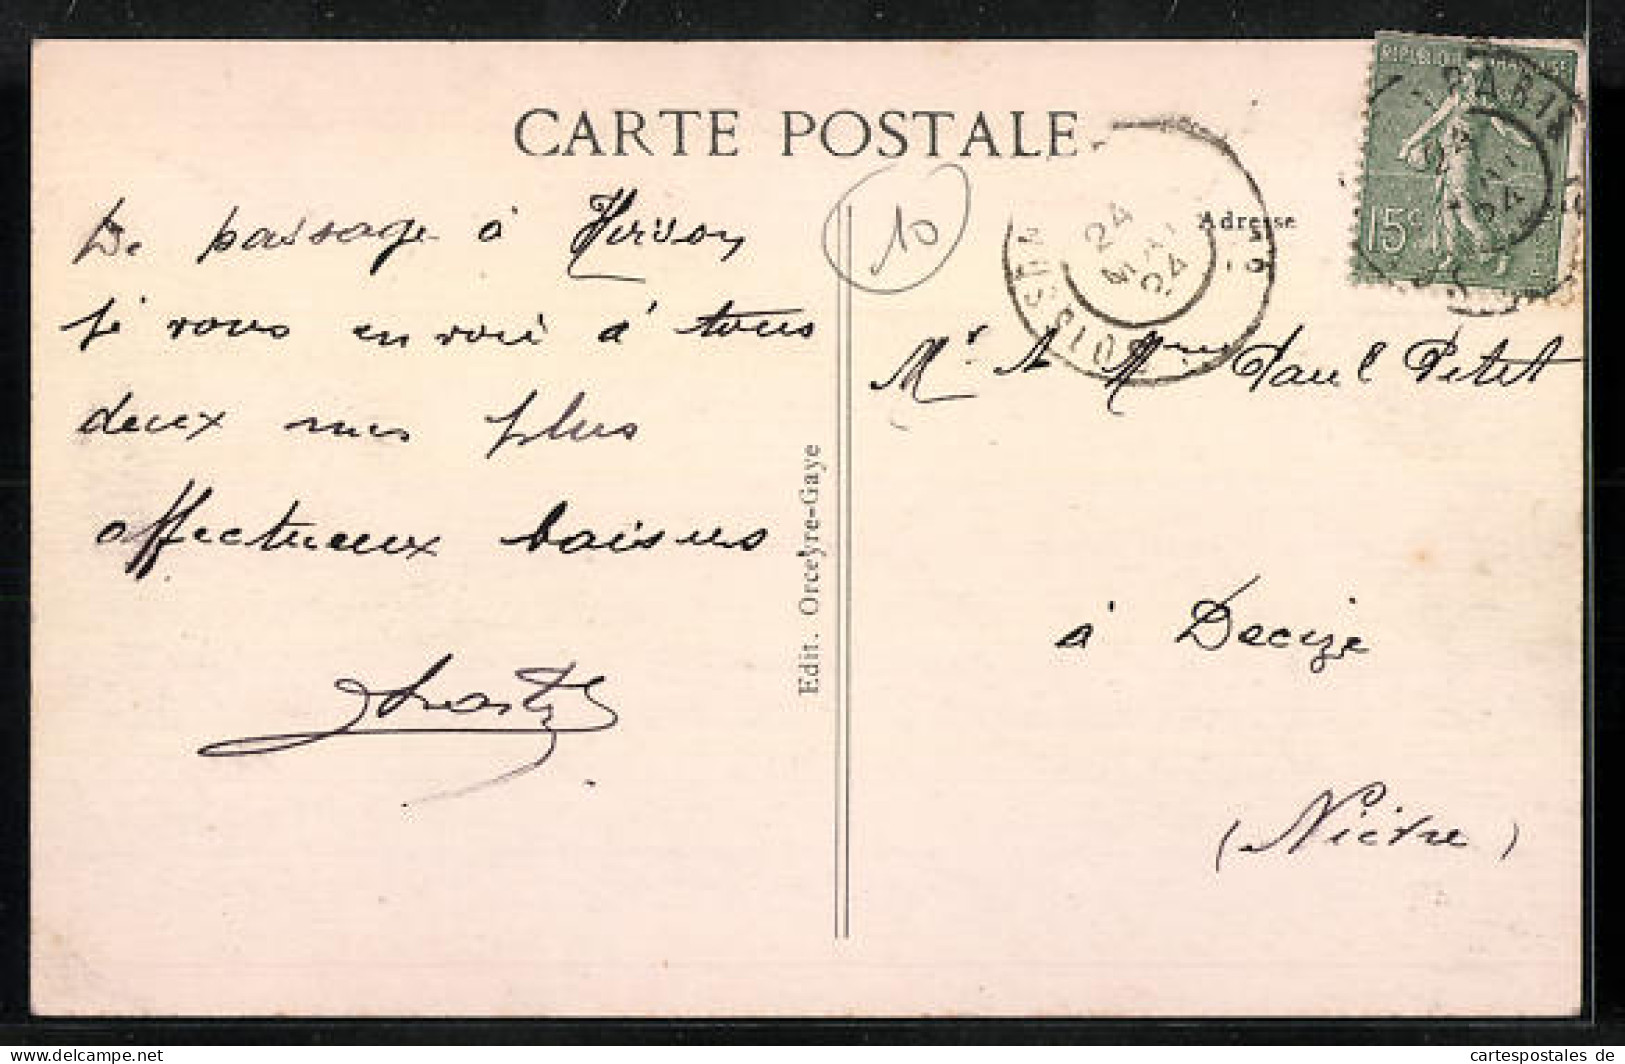 CARTE POSTALE
REPUBLIQUE FRANÇAISE
15c
PARIS
24
24
Adresse
10
De passage à Hirson
je vous envoie à tous
deux mes plus
affectueux baisers
Mr & Mme Paul Petet
à Decize
(Nièvre)
Edit. Orceyre-Gaye
www.delcampe.net
cartespostales de